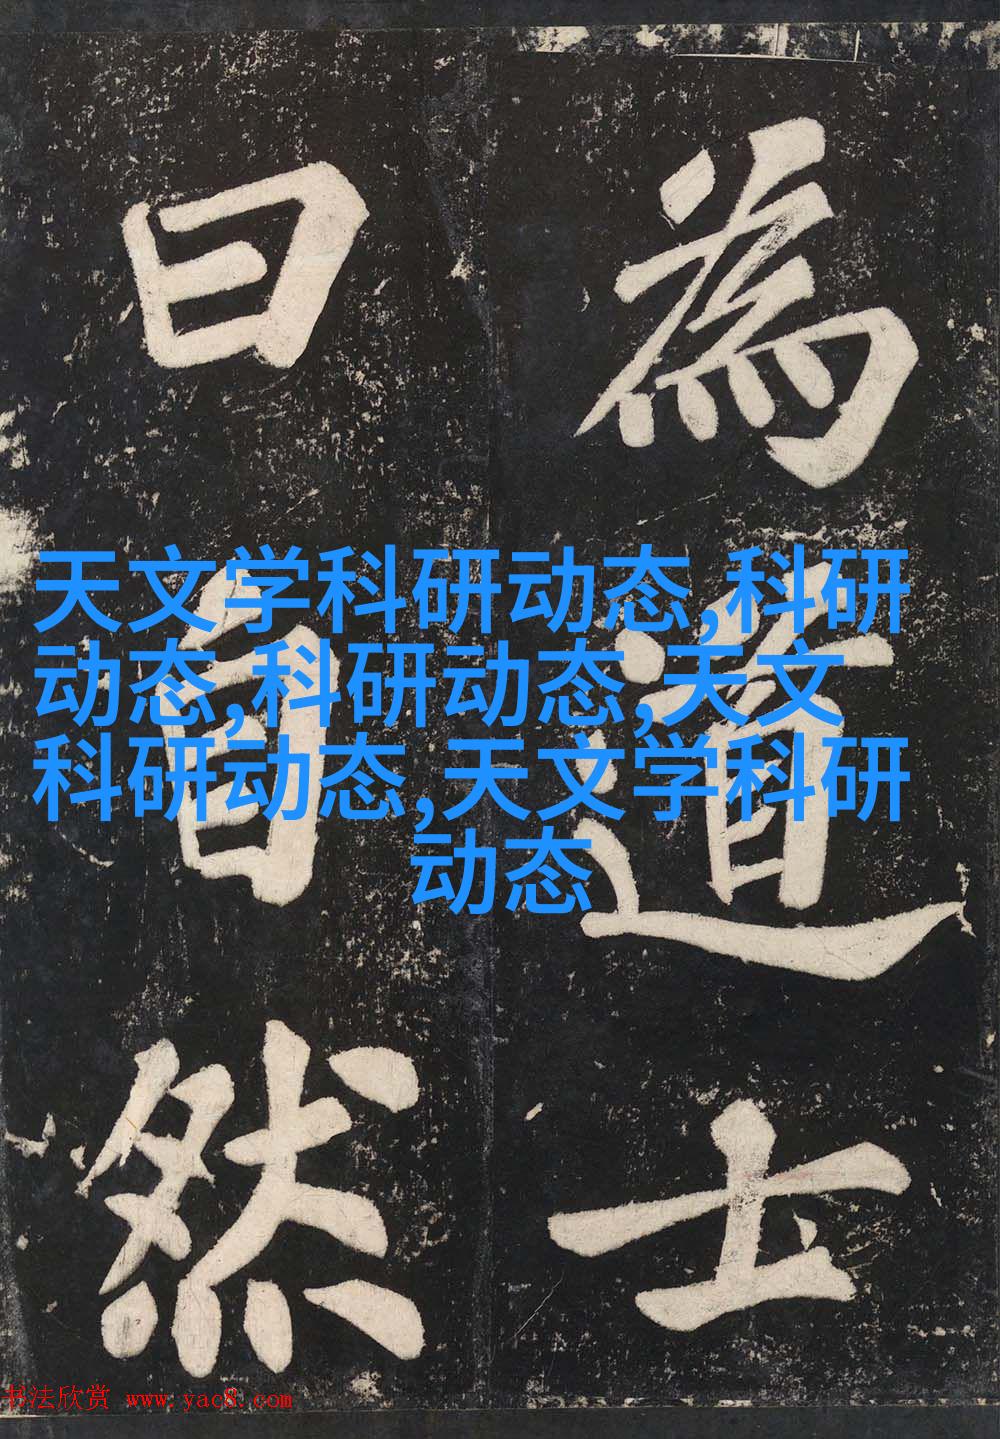 為道士
曰自然
天文学科研动态,科研
动态,科研动态,天文
科研动态,天文学科研
动态
书法欣赏 www.yac8.com